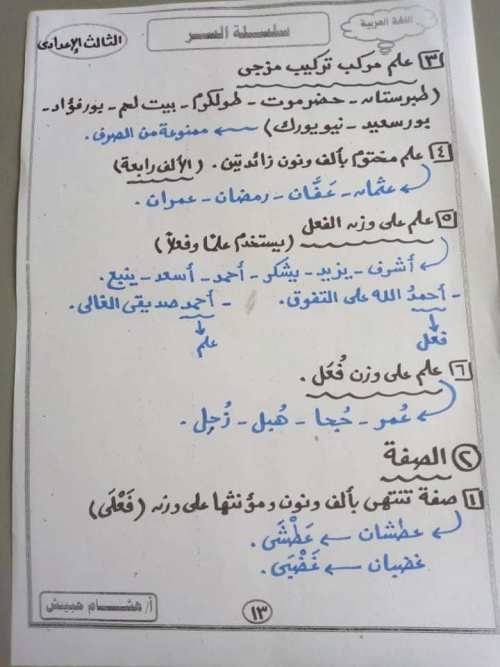 اللغة العربية
سلسلة السر
الثالث الإعدادى
٣ علم مركب تركيب مزجى
(طبرستان - حضرموت - طولكرم - بيت لحم - بورفؤاد -
بورسعيد - نيويورك) ← ممنوعة من الصرف.
٤ علم مختوم بألف ونون زائدتين. (الألف رابعة)
عثمان - عفَّان - رمضان - عمران.
٥ علم على وزن الفعل (يستخدم علمًا وفعلاً)
أشرف - يزيد - يشكر - أحمد - أسعد - ينبع.
- أحمدُ الله على التفوق. - أحمد صديقى الغالى.
فعل علم
٦ علم على وزن فُعَل.
عُمر - جُحا - هُبل - زُحل.
٢ الصفة
١ صفة تنتهى بألف ونون ومؤنثها على وزن (فَعْلَى)
عطشان ← عَطْشَى.
غضبان ← غَضْبَى.
أ/ هشام حبيش
١٣